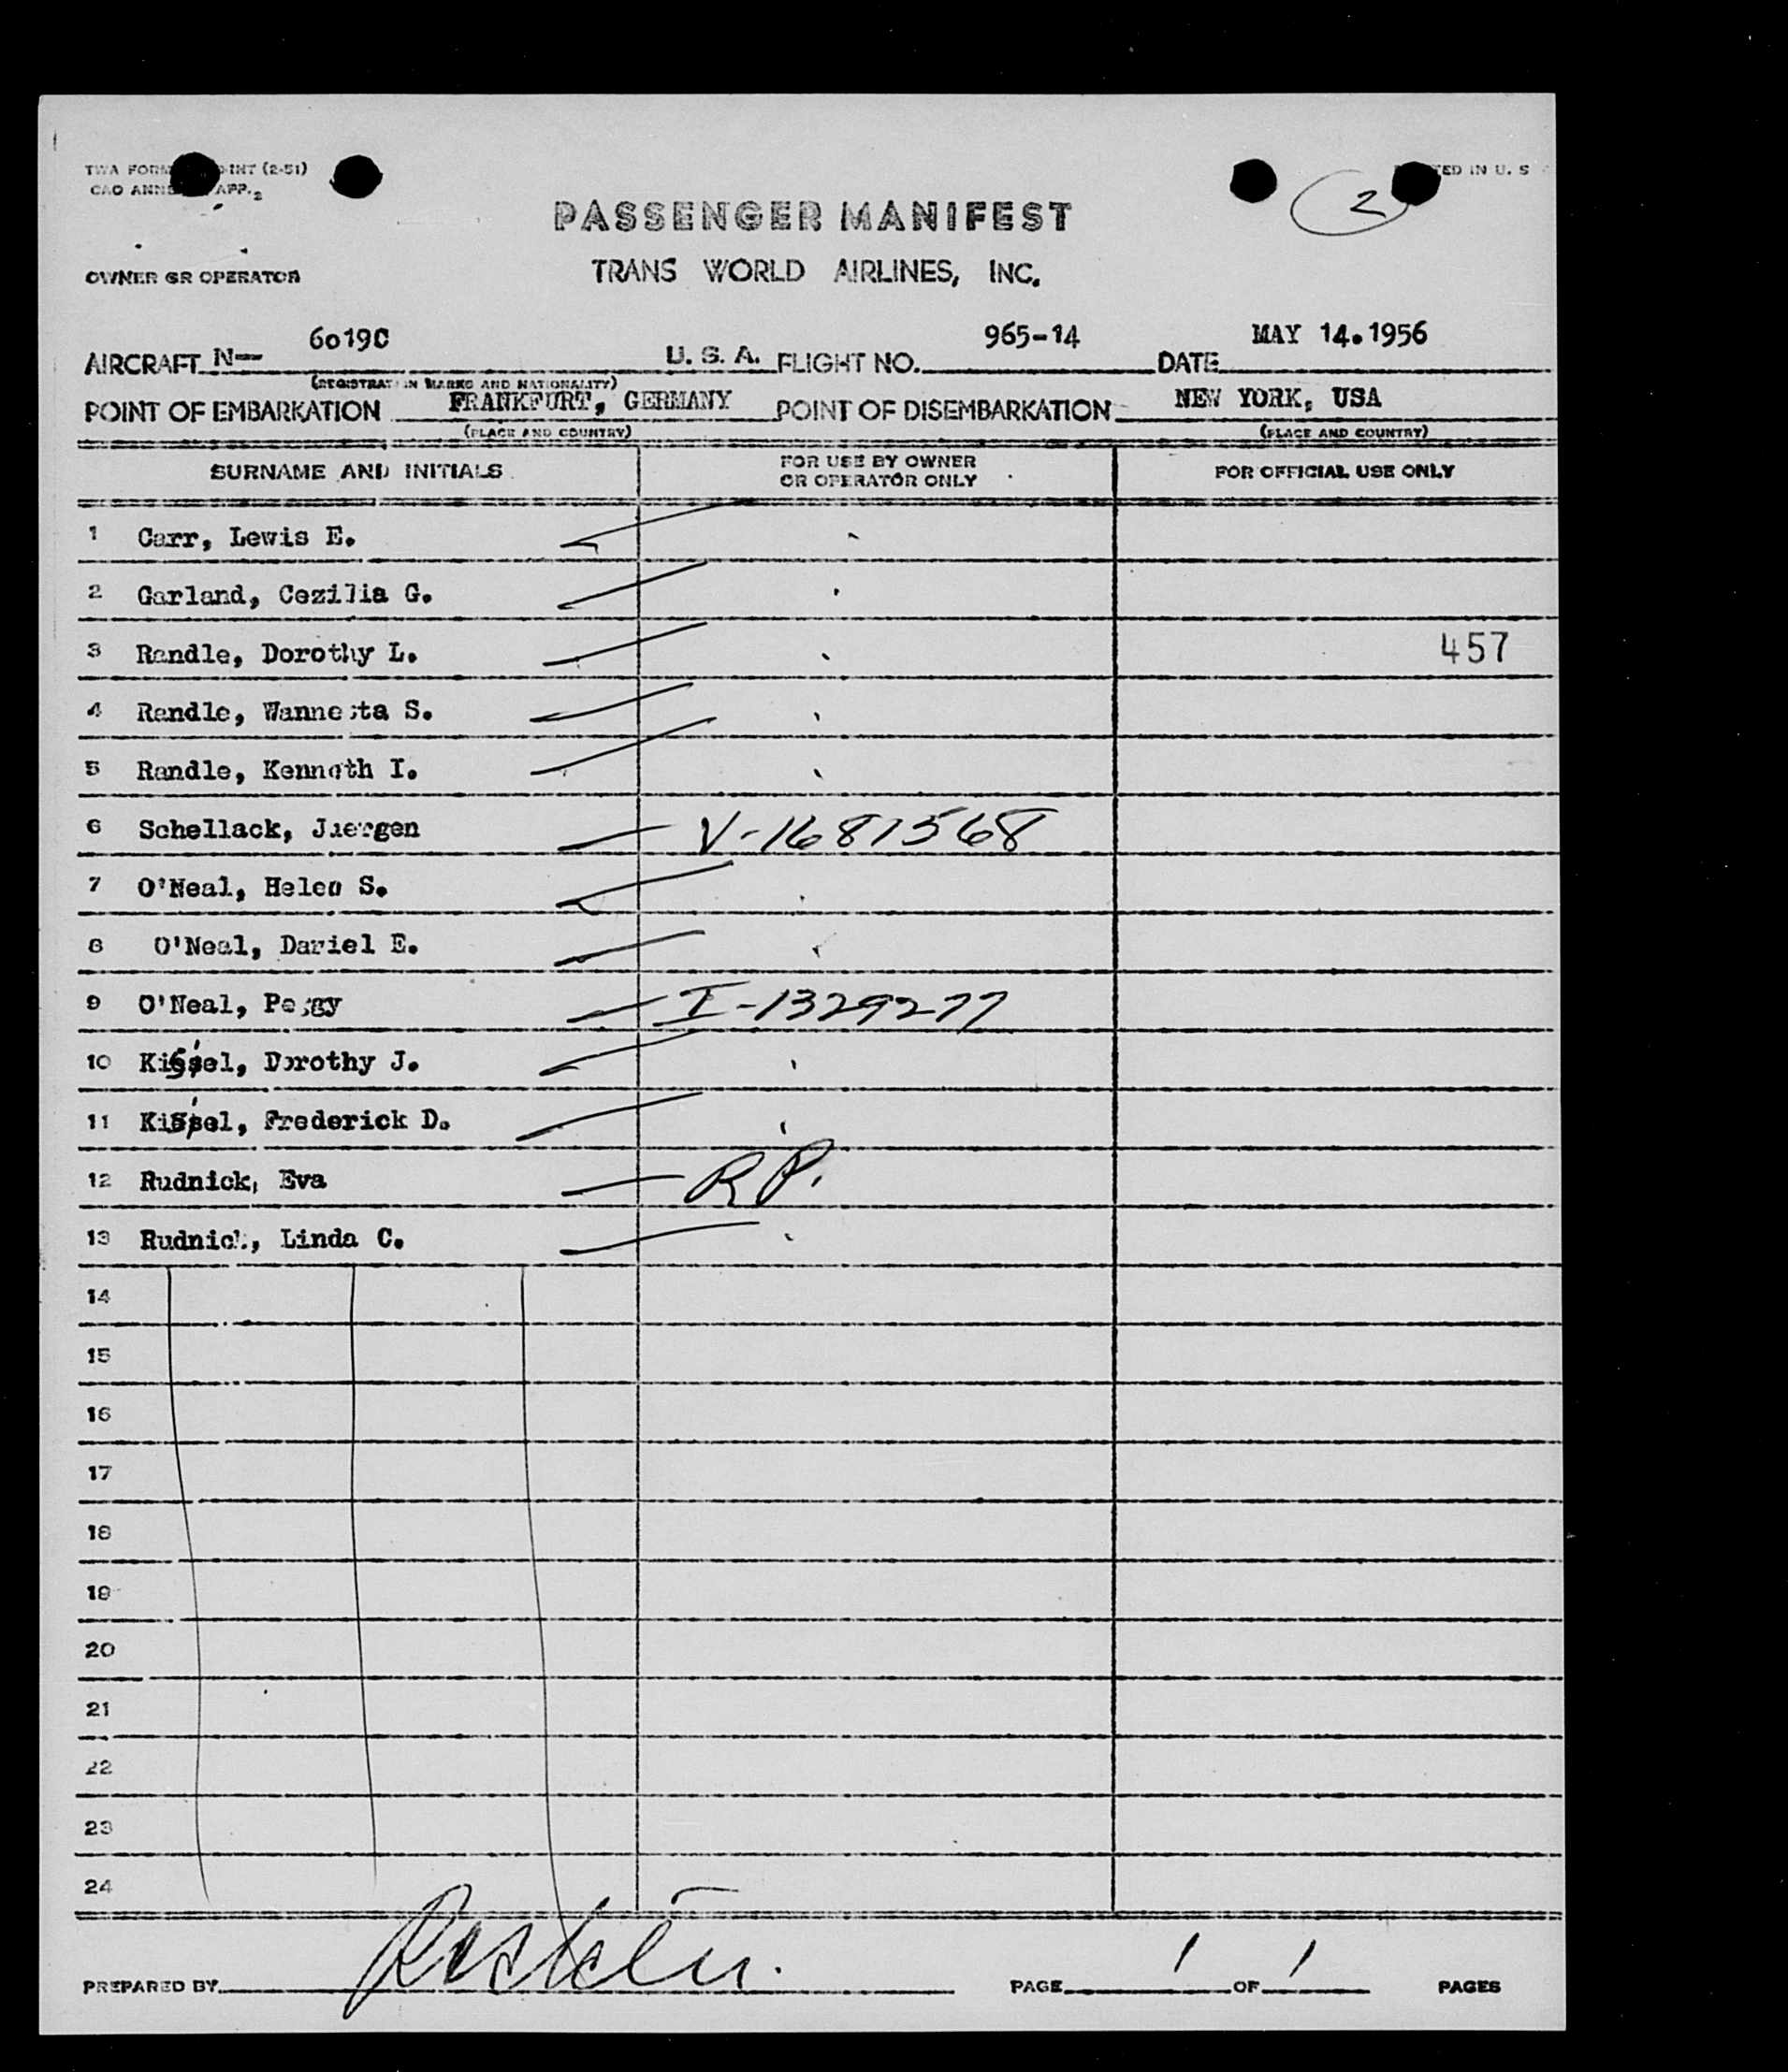 TWA FORM INT (2-51)
CAO ANNE APP. 2
2
TED IN U. S
PASSENGER MANIFEST
OWNER OR OPERATOR
TRANS WORLD AIRLINES, INC.
AIRCRAFT N— 6019C U. S. A. FLIGHT NO. 965-14 DATE MAY 14.1956
(REGISTRATION MARKS AND NATIONALITY)
POINT OF EMBARKATION FRANKFURT, GERMANY POINT OF DISEMBARKATION NEW YORK, USA
(PLACE AND COUNTRY) (PLACE AND COUNTRY)
SURNAME AND INITIALS FOR USE BY OWNER OR OPERATOR ONLY FOR OFFICIAL USE ONLY
1 Carr, Lewis E.
2 Garland, Cezilia G.
3 Randle, Dorothy L. 457
4 Randle, Wanneeta S.
5 Randle, Kenneth I.
6 Schellack, Juergen V-1681568
7 O'Neal, Helen S.
8 O'Neal, Daniel E.
9 O'Neal, Peggy I-1329277
10 Kissel, Dorothy J.
11 Kissel, Frederick D.
12 Rudnick, Eva R P.
13 Rudnick, Linda C.
14
15
16
17
18
19
20
21
22
23
24
PREPARED BY PAGE 1 OF 1 PAGES